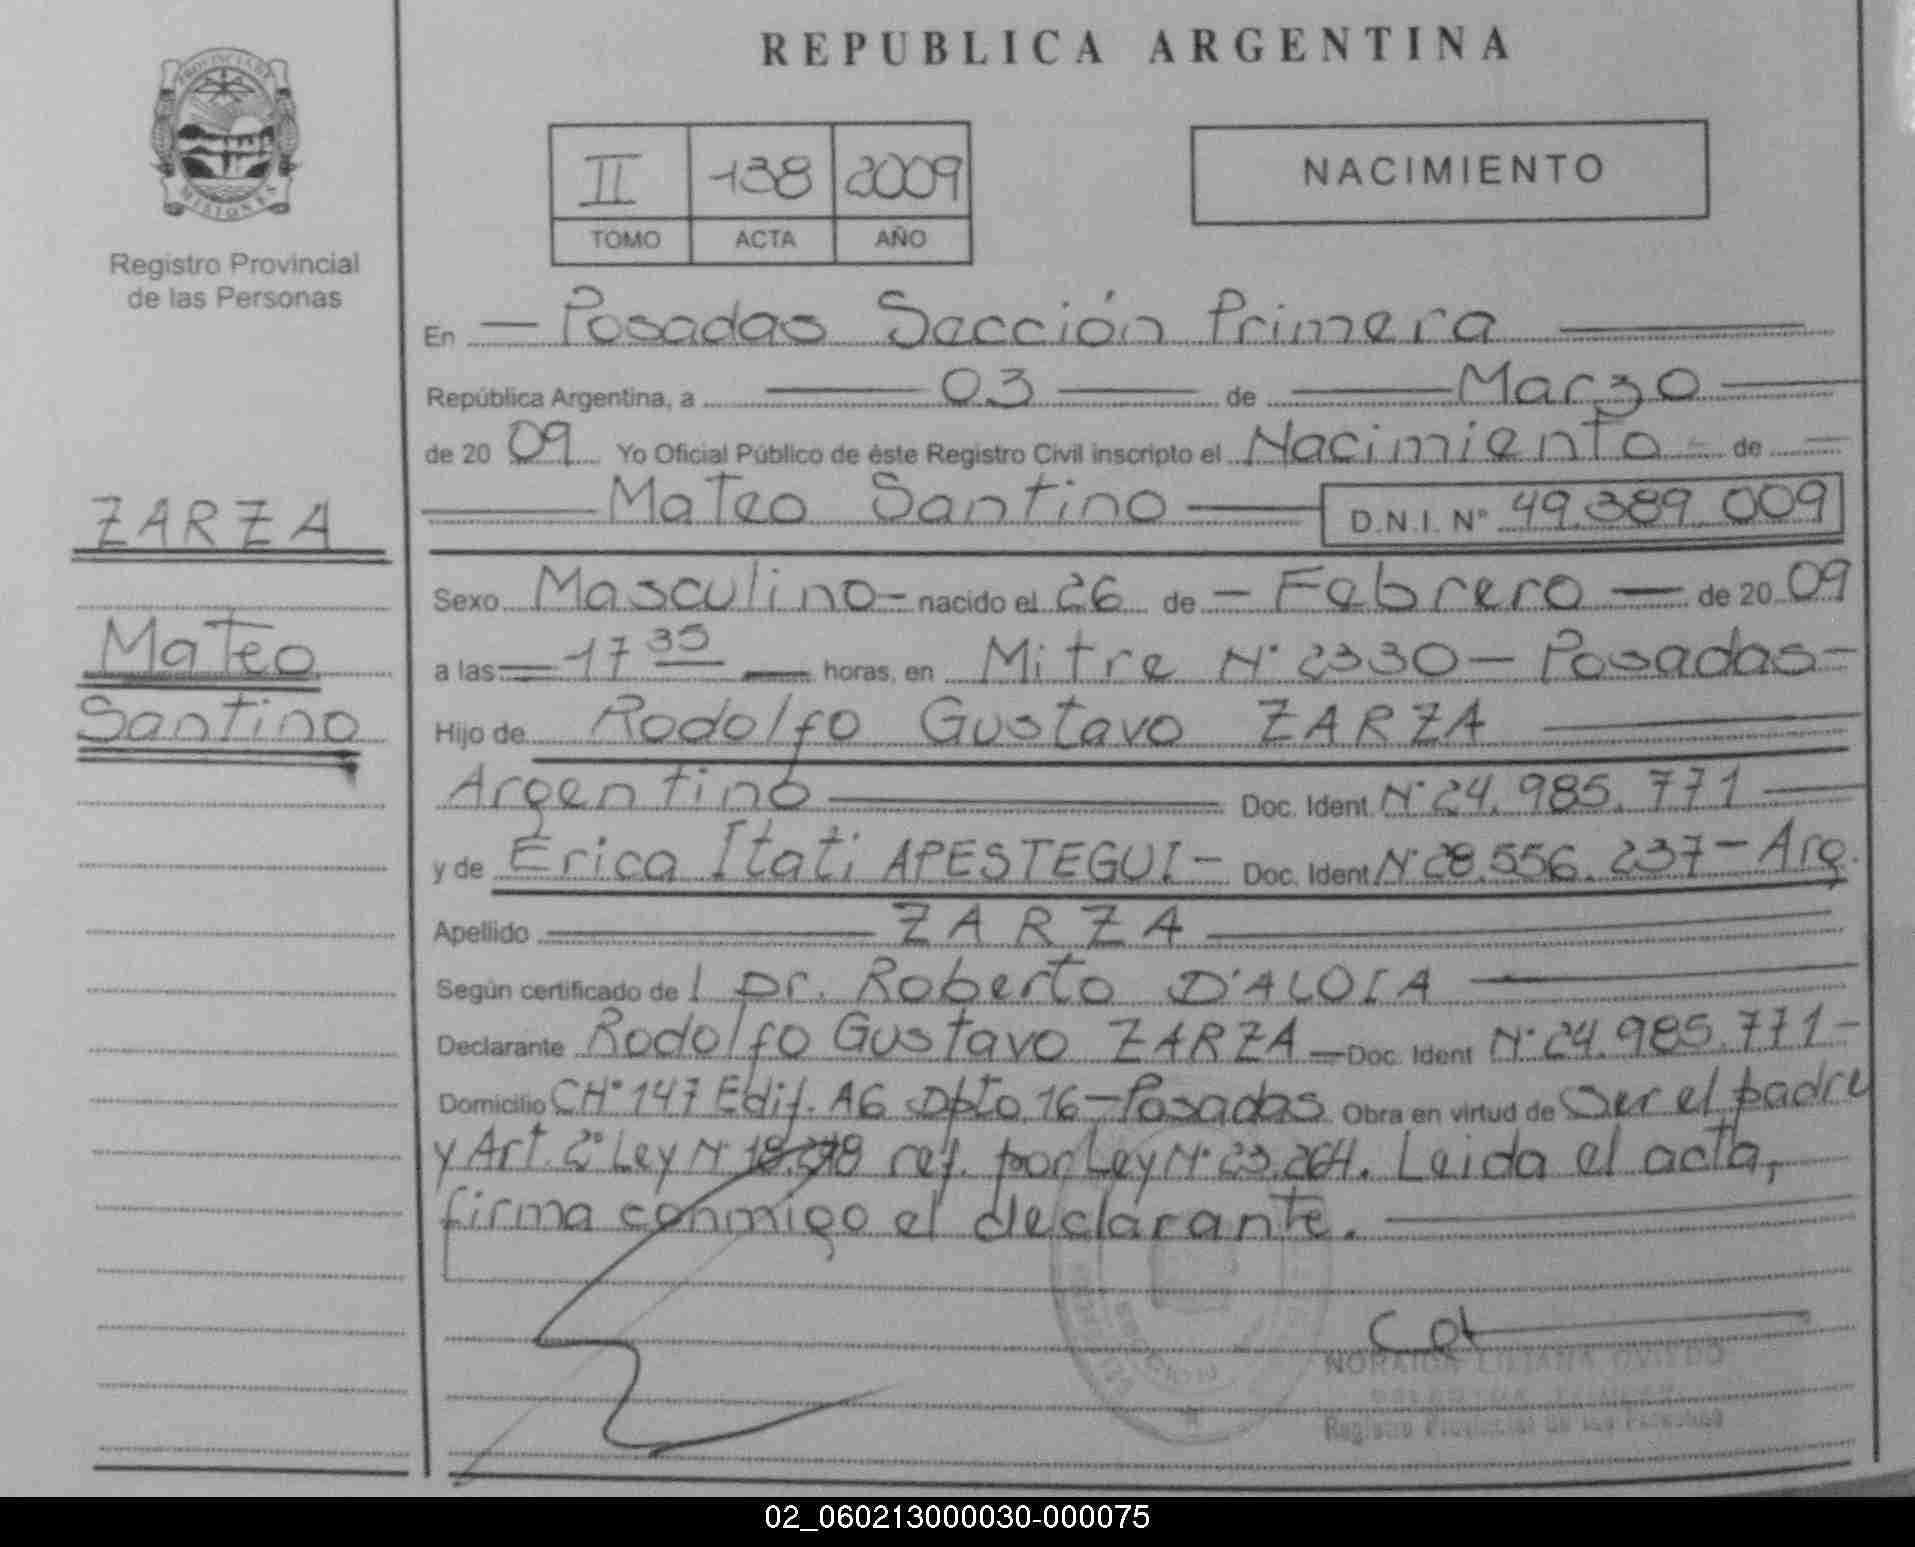 REPUBLICA ARGENTINA
PROVINCIA DE
MISIONES
Registro Provincial
de las Personas
II 138 2009
TOMO ACTA AÑO
NACIMIENTO
En Posadas Sección Primera
República Argentina, a 03 de Marzo
de 20 09 Yo Oficial Público de éste Registro Civil inscripto el Nacimiento de
Mateo Santino D.N.I. Nº 49.389.009
ZARZA
Mateo
Santino
Sexo Masculino - nacido el 26 de - Febrero - de 20 09
a las 17 35 horas, en Mitre Nº 2330 - Posadas -
Hijo de Rodolfo Gustavo ZARZA
Argentino Doc. Ident. Nº 24.985.771
y de Erica Itati APESTEGUI - Doc. Ident Nº 28.556.237 - Arg.
Apellido ZARZA
Según certificado de l Dr. Roberto D'ALOIA
Declarante Rodolfo Gustavo ZARZA - Doc. Ident Nº 24.985.771 -
Domicilio CHº 147 Edif. A6 Dpto. 16 - Posadas. Obra en virtud de Ser el padre
y Art. 2º Ley Nº ref. por Ley Nº 23.264. Leida el acta,
firma conmigo el declarante.
NORAIDA LILIANA OVIEDO
Registro Provincial de las Personas
02_060213000030-000075